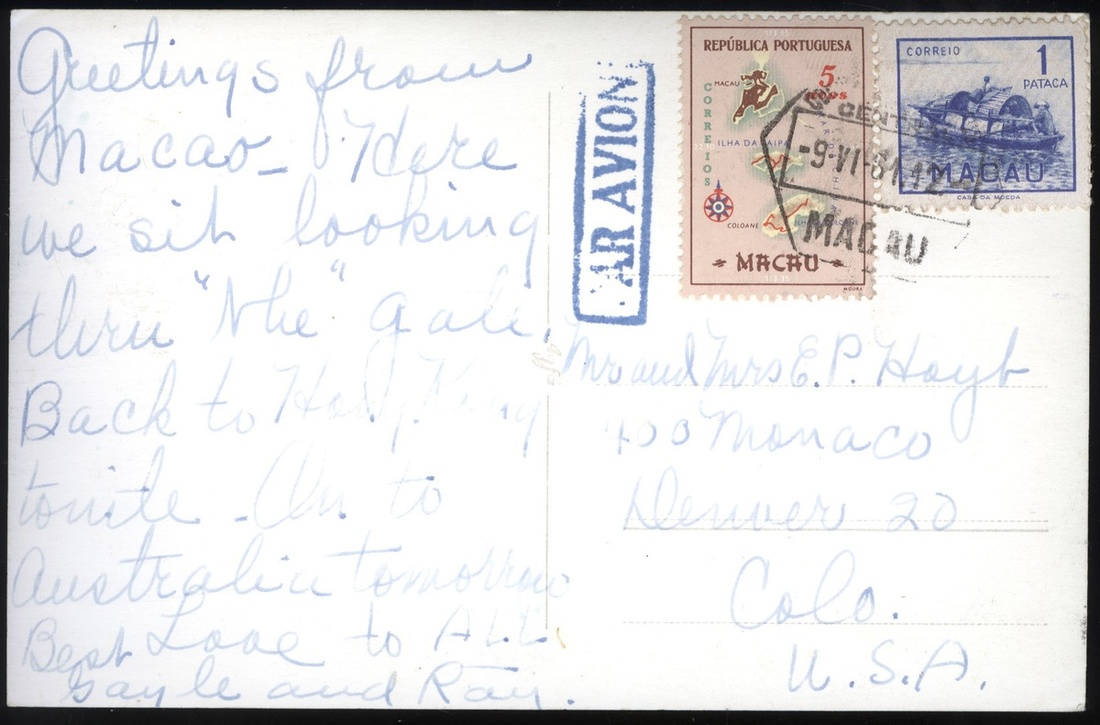 Greetings from
Macao - Here
we sit looking
thru "the" gate.
Back to Hong Kong
tonite - On to
Australia tomorrow
Best Love to ALL
Gayle and Ray.
PAR AVION
REPÚBLICA PORTUGUESA
5
avos
CORREIOS
MACAU
ILHA DA TAIPA
COLOANE
MACAU
MOURA
CORREIO
1
PATACA
MACAU
CASA DA MOEDA
-9-VI-61-12
MACAU
Mr and Mrs E. P. Hoyt
400 Monaco
Denver 20
Colo.
U.S.A.